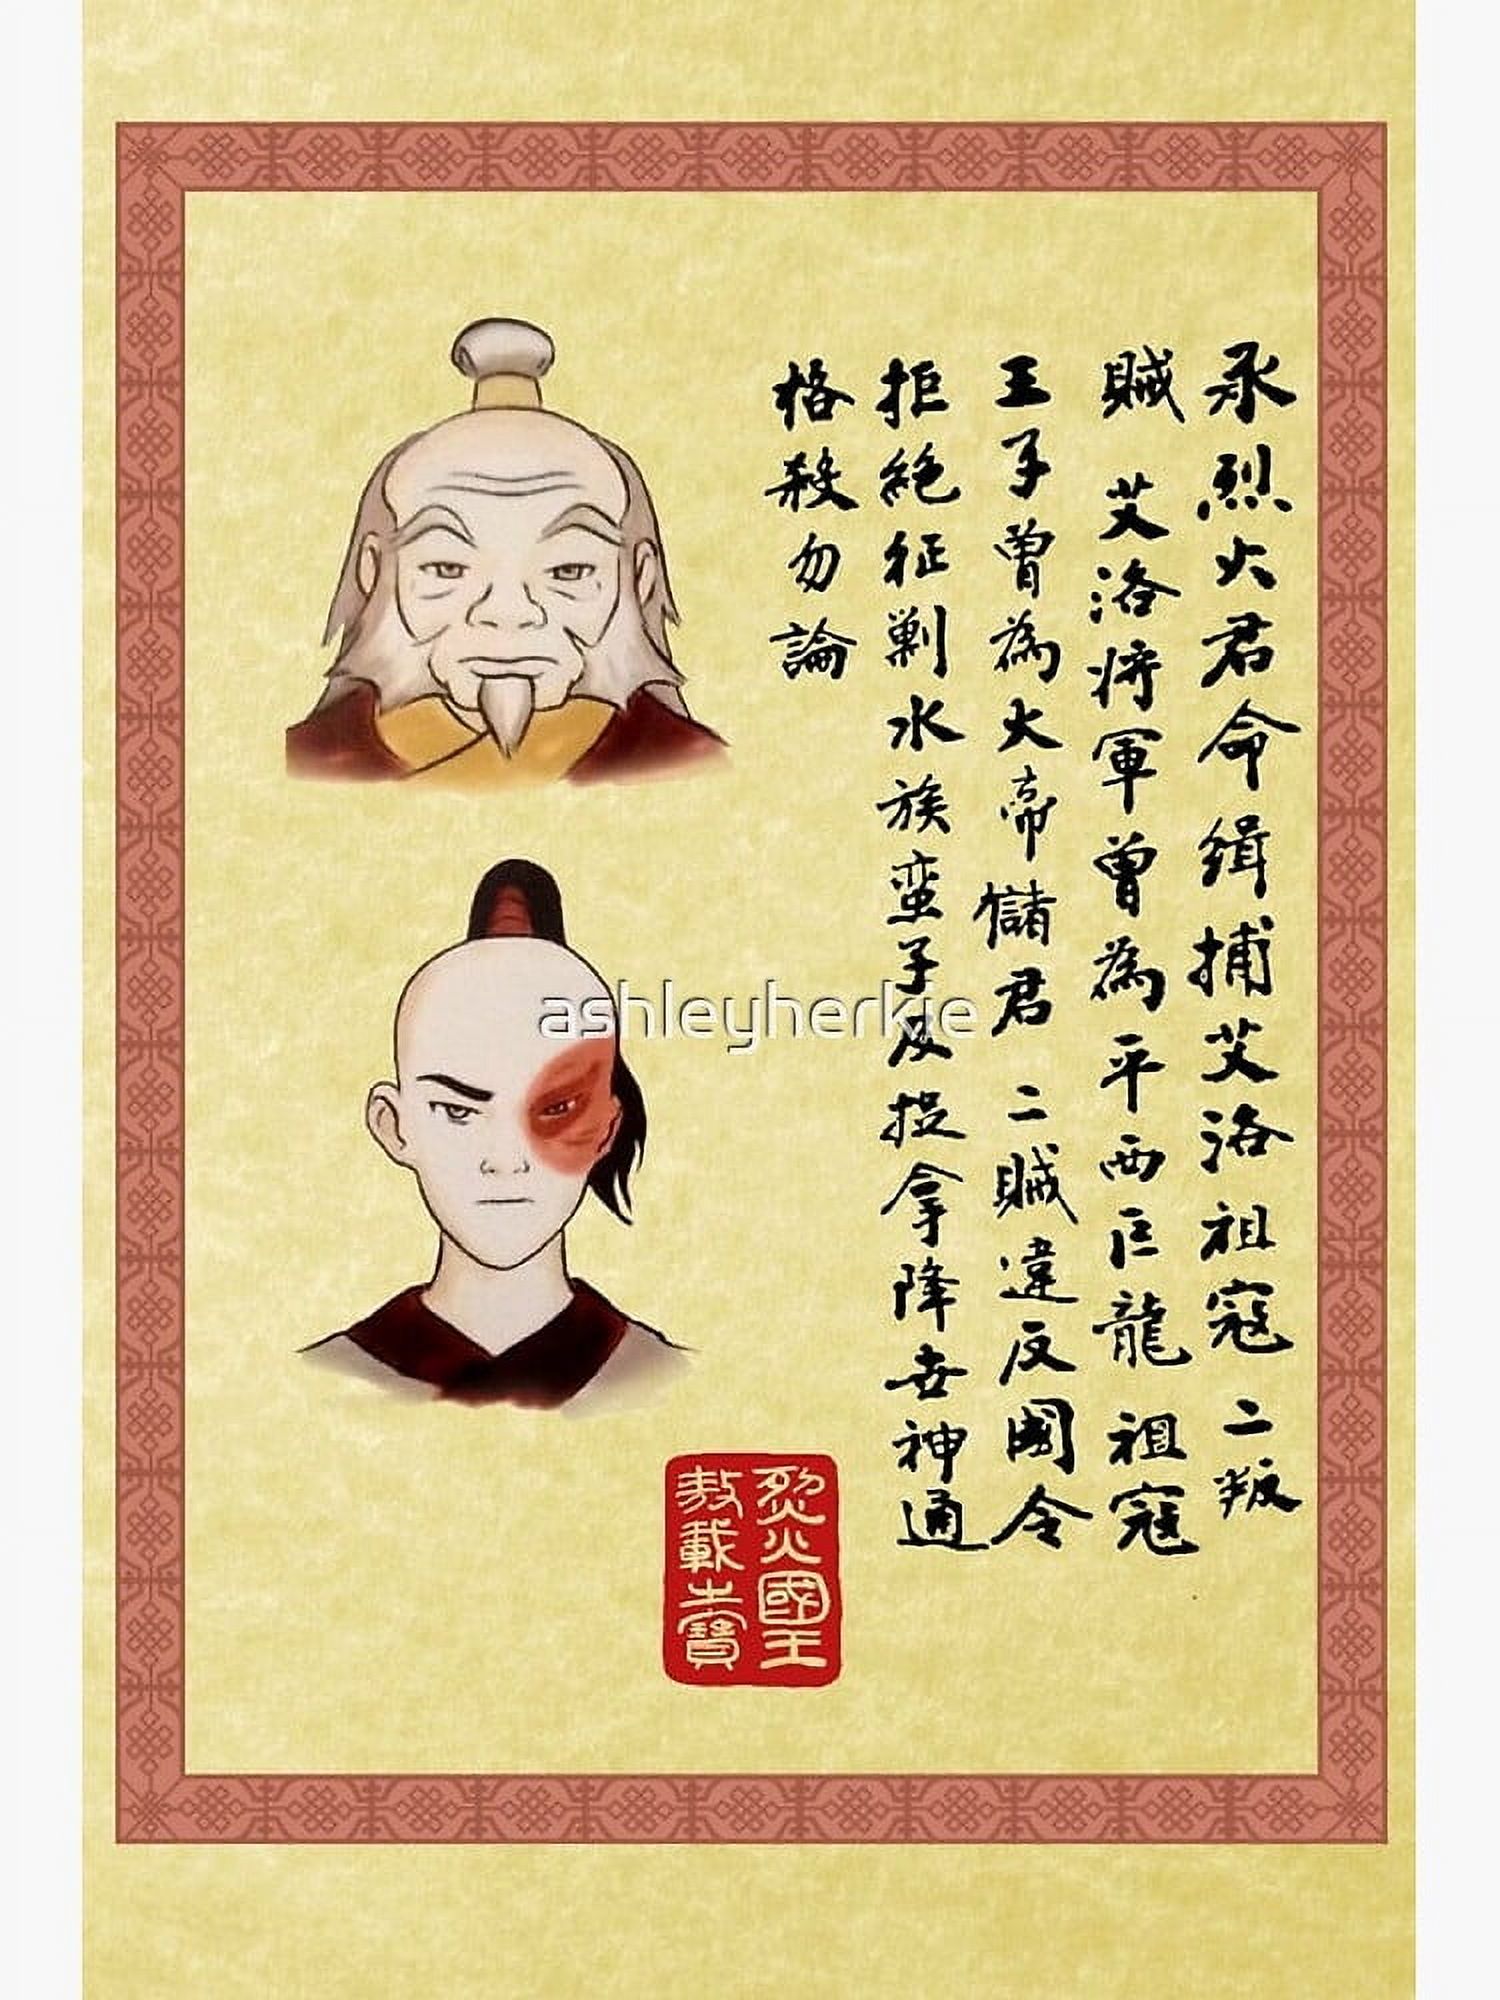 承烈火君命緝捕艾洛祖寇二叛
賊 艾洛將軍曾為平西巨龍祖寇
王子曾為火帝儲君二賊違反國令
拒絕征剿水族蛮子及捉拿降世神通
格殺勿論
烈火國王
敕載之寶
ashleyherkie